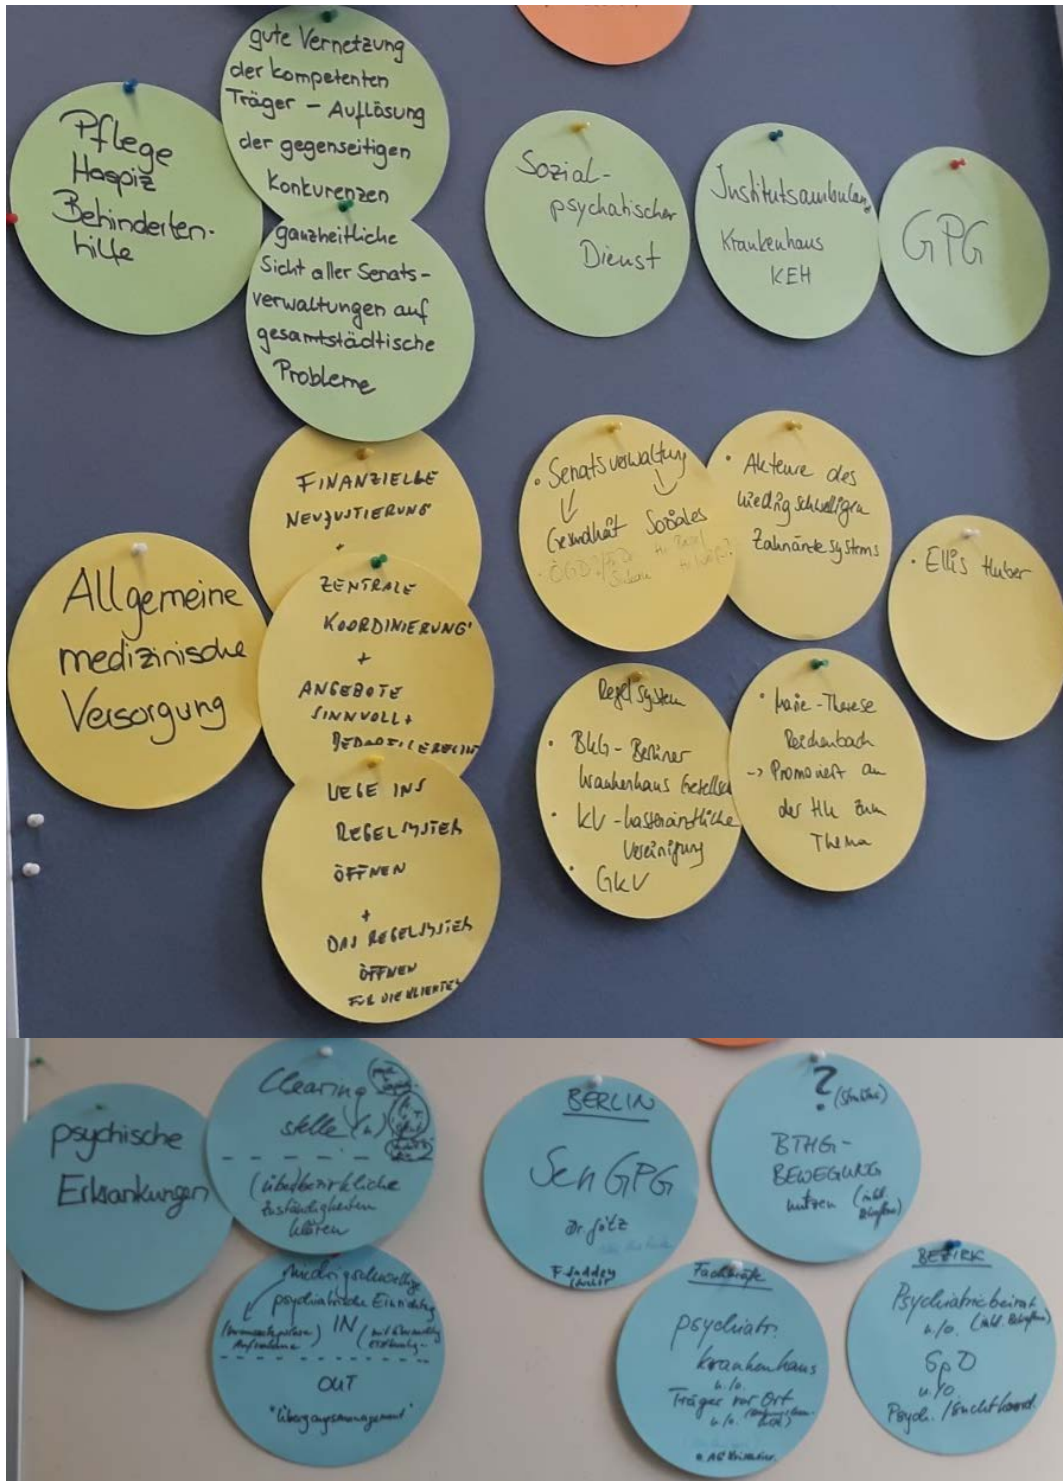 Pflege
Hospiz
Behinderten-
hilfe
gute Vernetzung
der kompetenten
Träger – Auflösung
der gegenseitigen
Konkurenzen
ganzheitliche
Sicht aller Senats-
verwaltungen auf
gesamtstädtische
Probleme
Sozial-
psychatischer
Dienst
Institutsambulanz
Krankenhaus
KEH
GPG
Allgemeine
medizinische
Versorgung
FINANZIELLE
NEUJUSTIERUNG
+
ZENTRALE
KOORDINIERUNG
+
ANGEBOTE
SINNVOLL +
WEGE INS
REGELSYSTEM
ÖFFNEN
+
DAS REGELSYSTEM
ÖFFNEN
FÜR DIE KLIENTEN
• Senatsverwaltung
Gesundheit Soziales
• Akteure des
niedrigschwelligen
Zahnärztesystems
• Ellis Huber
Regelsystem
• BKG - Berliner
Krankenhaus Gesellsch
• KV - kassenärztliche
Vereinigung
• GKV
• Marie-Therese
Reichenbach
-> Promoviert an
der HU zum
Thema
psychische
Erkrankungen
Clearing
stelle (n)
(überbezirkliche
Zuständigkeiten
klären
niedrigschwellige
psychiatrische Einrichtung
IN
OUT
"Übergangsmanagement"
BERLIN
Sen GPG
Dr. Götz
?
BTHG-
BEWEGUNG
nutzen (inkl.
Fachkräfte
psychiatr.
Krankenhaus
u./o.
Träger vor Ort
u./o.
BEZIRK
Psychiatriebeirat
u./o. (inkl.
SpD
u./o.
Psych. / Suchtkoord.